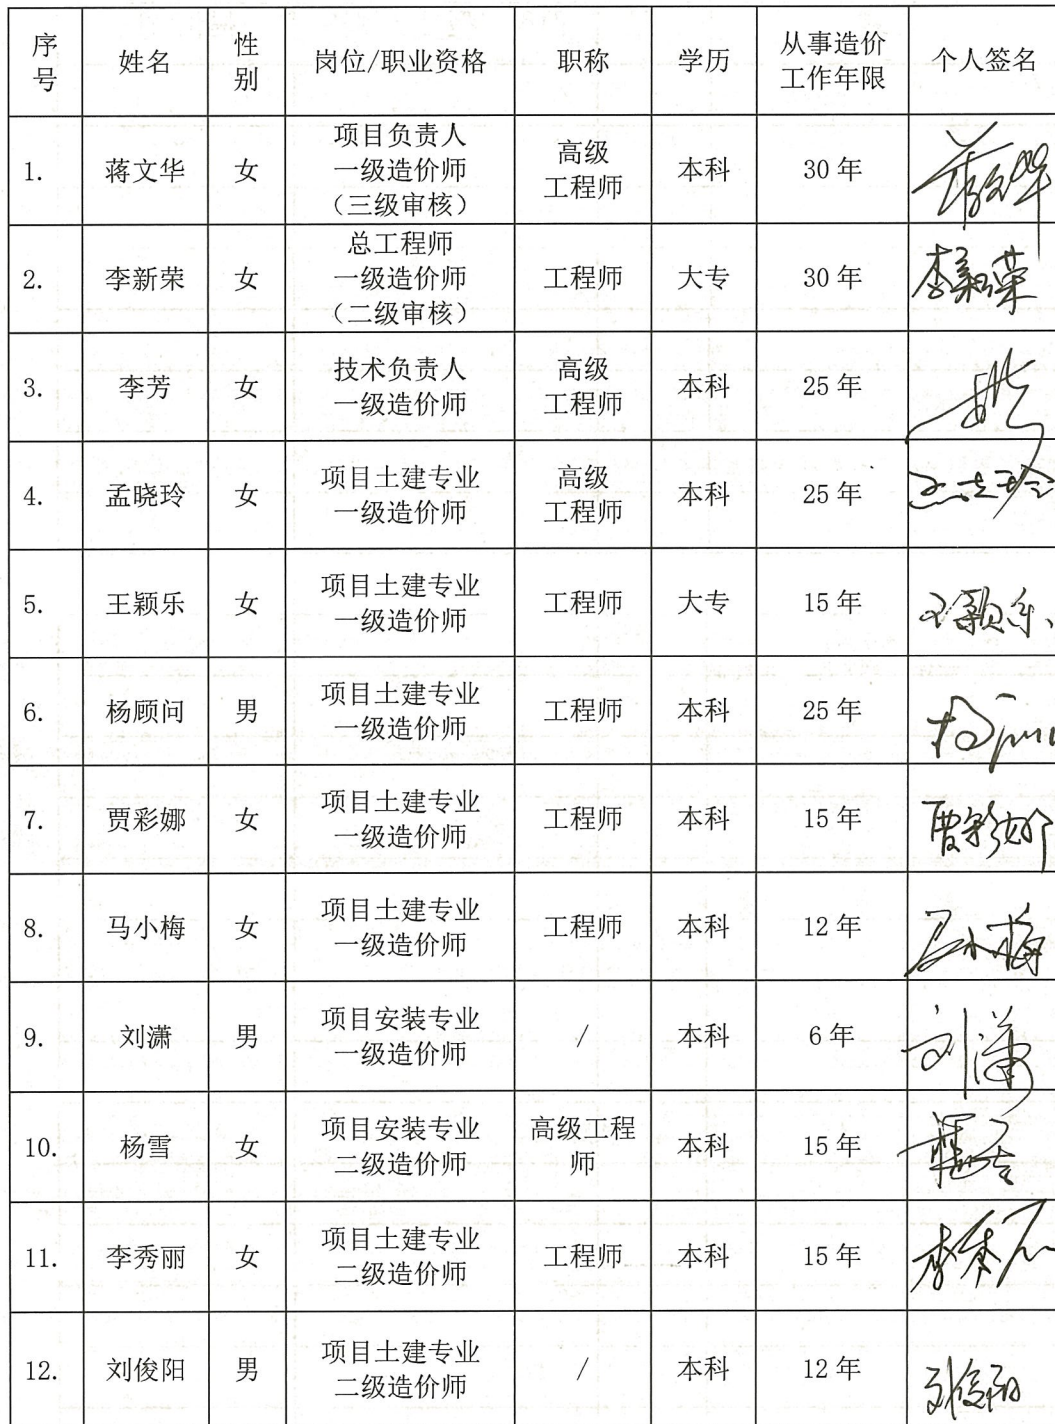 序号 姓名 性别 岗位/职业资格 职称 学历 从事造价工作年限 个人签名
1. 蒋文华 女 项目负责人 一级造价师 （三级审核） 高级工程师 本科 30 年
2. 李新荣 女 总工程师 一级造价师 （二级审核） 工程师 大专 30 年 李新荣
3. 李芳 女 技术负责人 一级造价师 高级工程师 本科 25 年
4. 孟晓玲 女 项目土建专业 一级造价师 高级工程师 本科 25 年
5. 王颖乐 女 项目土建专业 一级造价师 工程师 大专 15 年 王颖乐
6. 杨顾问 男 项目土建专业 一级造价师 工程师 本科 25 年
7. 贾彩娜 女 项目土建专业 一级造价师 工程师 本科 15 年 贾彩娜
8. 马小梅 女 项目土建专业 一级造价师 工程师 本科 12 年 马小梅
9. 刘潇 男 项目安装专业 一级造价师 / 本科 6 年 刘潇
10. 杨雪 女 项目安装专业 二级造价师 高级工程师 本科 15 年
11. 李秀丽 女 项目土建专业 二级造价师 工程师 本科 15 年
12. 刘俊阳 男 项目土建专业 二级造价师 / 本科 12 年 刘俊阳